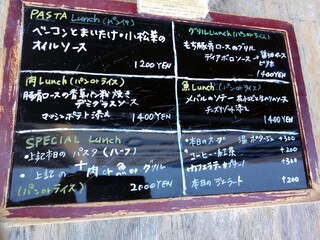 PASTA Lunch (パン付)
ベーコンとまいたけ・小松菜の
オイルソース
1200YEN
グリルLunch (パンorライス)
もち豚肩ロースのグリル
ディアボロソース
1400YEN
肉Lunch (パンorライス)
豚肩ロースの香草パン粉焼き
デミグラスソース
マッシュポテト添え 1400YEN
魚Lunch (パンorライス)
メバルのソテー
添え
1400YEN
SPECIAL Lunch
・上記本日のパスタ (ハーフ)
・上記の 肉or魚orグリル
(パンorライス) 2000YEN
・本日のスープ ポタージュ +300
・コーヒー・紅茶 +200
+300
本日のジェラート +200